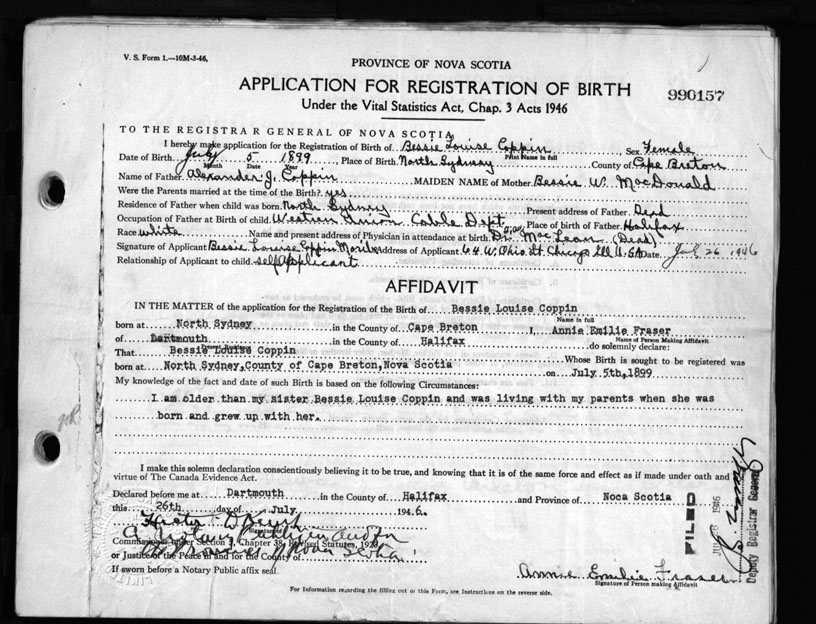 V. S. Form 1.—10M-3-46.
PROVINCE OF NOVA SCOTIA
APPLICATION FOR REGISTRATION OF BIRTH
990157
Under the Vital Statistics Act, Chap. 3 Acts 1946
TO THE REGISTRAR GENERAL OF NOVA SCOTIA
I hereby make application for the Registration of Birth of Bessie Louise Coppin Sex Female
Print Name in full
Date of Birth July 5 1899 Place of Birth North Sydney County of Cape Breton
Month Date Year
Name of Father Alexander J. Coppin MAIDEN NAME of Mother Bessie W. MacDonald
Were the Parents married at the time of the Birth? yes
Residence of Father when child was born North Sydney Present address of Father Dead
Occupation of Father at Birth of child Western Union Cable Dept. Place of birth of Father Halifax
Race white Name and present address of Physician in attendance at birth Dr. MacLean (Dead)
Signature of Applicant Bessie Louise Coppin Address of Applicant 64 W. Ohio St. Chicago Ill U.S.A Date July 26 1946
Relationship of Applicant to child self Applicant
AFFIDAVIT
IN THE MATTER of the application for the Registration of the Birth of Bessie Louise Coppin
Name in full
born at North Sydney in the County of Cape Breton I, Annie Emilie Fraser
Name of Person Making Affidavit
of Dartmouth in the County of Halifax do solemnly declare:
That Bessie Louise Coppin Whose Birth is sought to be registered was
born at North Sydney, County of Cape Breton, Nova Scotia on July 5th, 1899
My knowledge of the fact and date of such Birth is based on the following Circumstances:
I am older than my sister Bessie Louise Coppin and was living with my parents when she was
born and grew up with her.
I make this solemn declaration conscientiously believing it to be true, and knowing that it is of the same force and effect as if made under oath and
virtue of The Canada Evidence Act.
Declared before me at Dartmouth in the County of Halifax and Province of Noca Scotia
this 26th day of July 1946.
A Notary Public in and for
Commissioner under Section 3, Chapter 38, Revised Statutes, 1923
the Province of Nova Scotia
or Justice of the Peace in and for the County of
If sworn before a Notary Public affix seal.
Annie Emilie Fraser
Signature of Person making Affidavit
FILED
1946
Deputy Registrar General
For Information regarding the filling out of this Form, see Instructions on the reverse side.